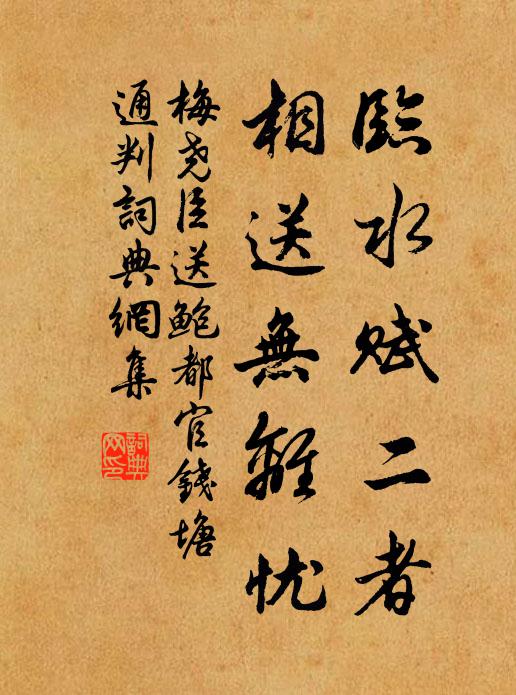 臨水賦二者
相送無離忧
梅尧臣送鲍都官錢塘
通判詞典網集
詞典网印